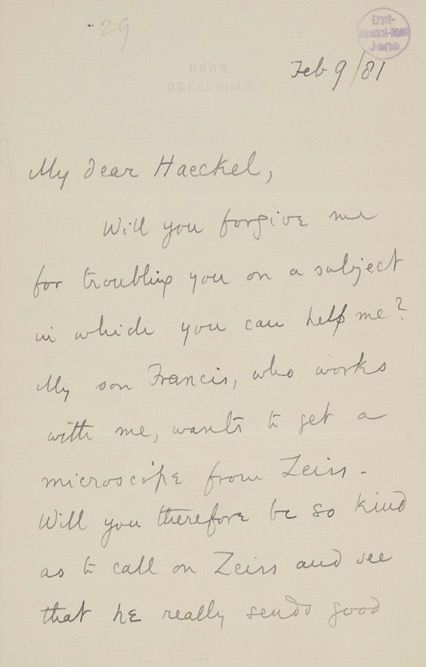 29
Ernst-
Haeckel-Haus
Jena
DOWN,
BECKENHAM.
Feb 9/81
My dear Haeckel,
Will you forgive me
for troubling you on a subject
in which you can help me?
My son Francis, who works
with me, wants to get a
microscope from Zeiss -
Will you therefore be so kind
as to call on Zeiss and see
that he really sends good